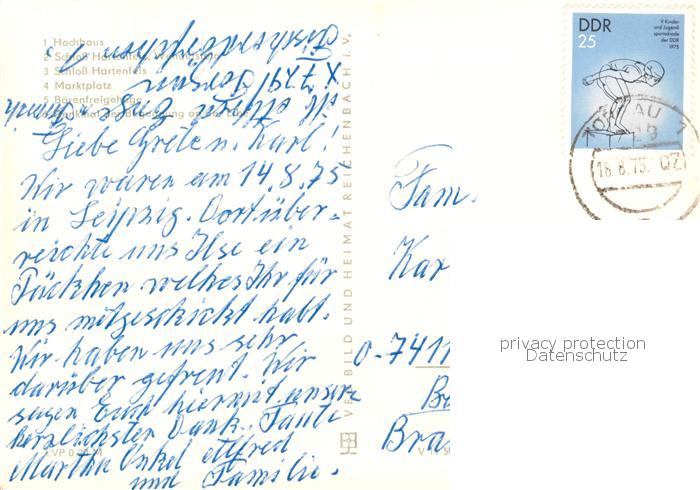 1 Hochhaus
2 Schloß Hartenfels, Wendelstein
3 Schloß Hartenfels
4 Marktplatz
5 Bärenfreigehege
6 Denkmal der Begegnung an der Elbe
Liebe Greten. Karl!
Wir waren am 14.8.75
in Leipzig. Dort über-
reichte uns Ilse ein
Päckchen welches Ihr für
uns mitgeschickt habt.
Wir haben uns sehr
darüber gefreut. Wir
sagen Euch hiermit unsere
herzlichsten Dank. Tante
Martha Onkel Alfred
und Familie.
EVP 0,20 M
VERLAG BILD UND HEIMAT REICHENBACH i. V.
DDR
25
V. Kinder-
und Jugend-
spartakiade
der DDR
1975
TORGAU 1
18.8.75
Fam.
Kar
D-7411
Bra
privacy protection
Datenschutz